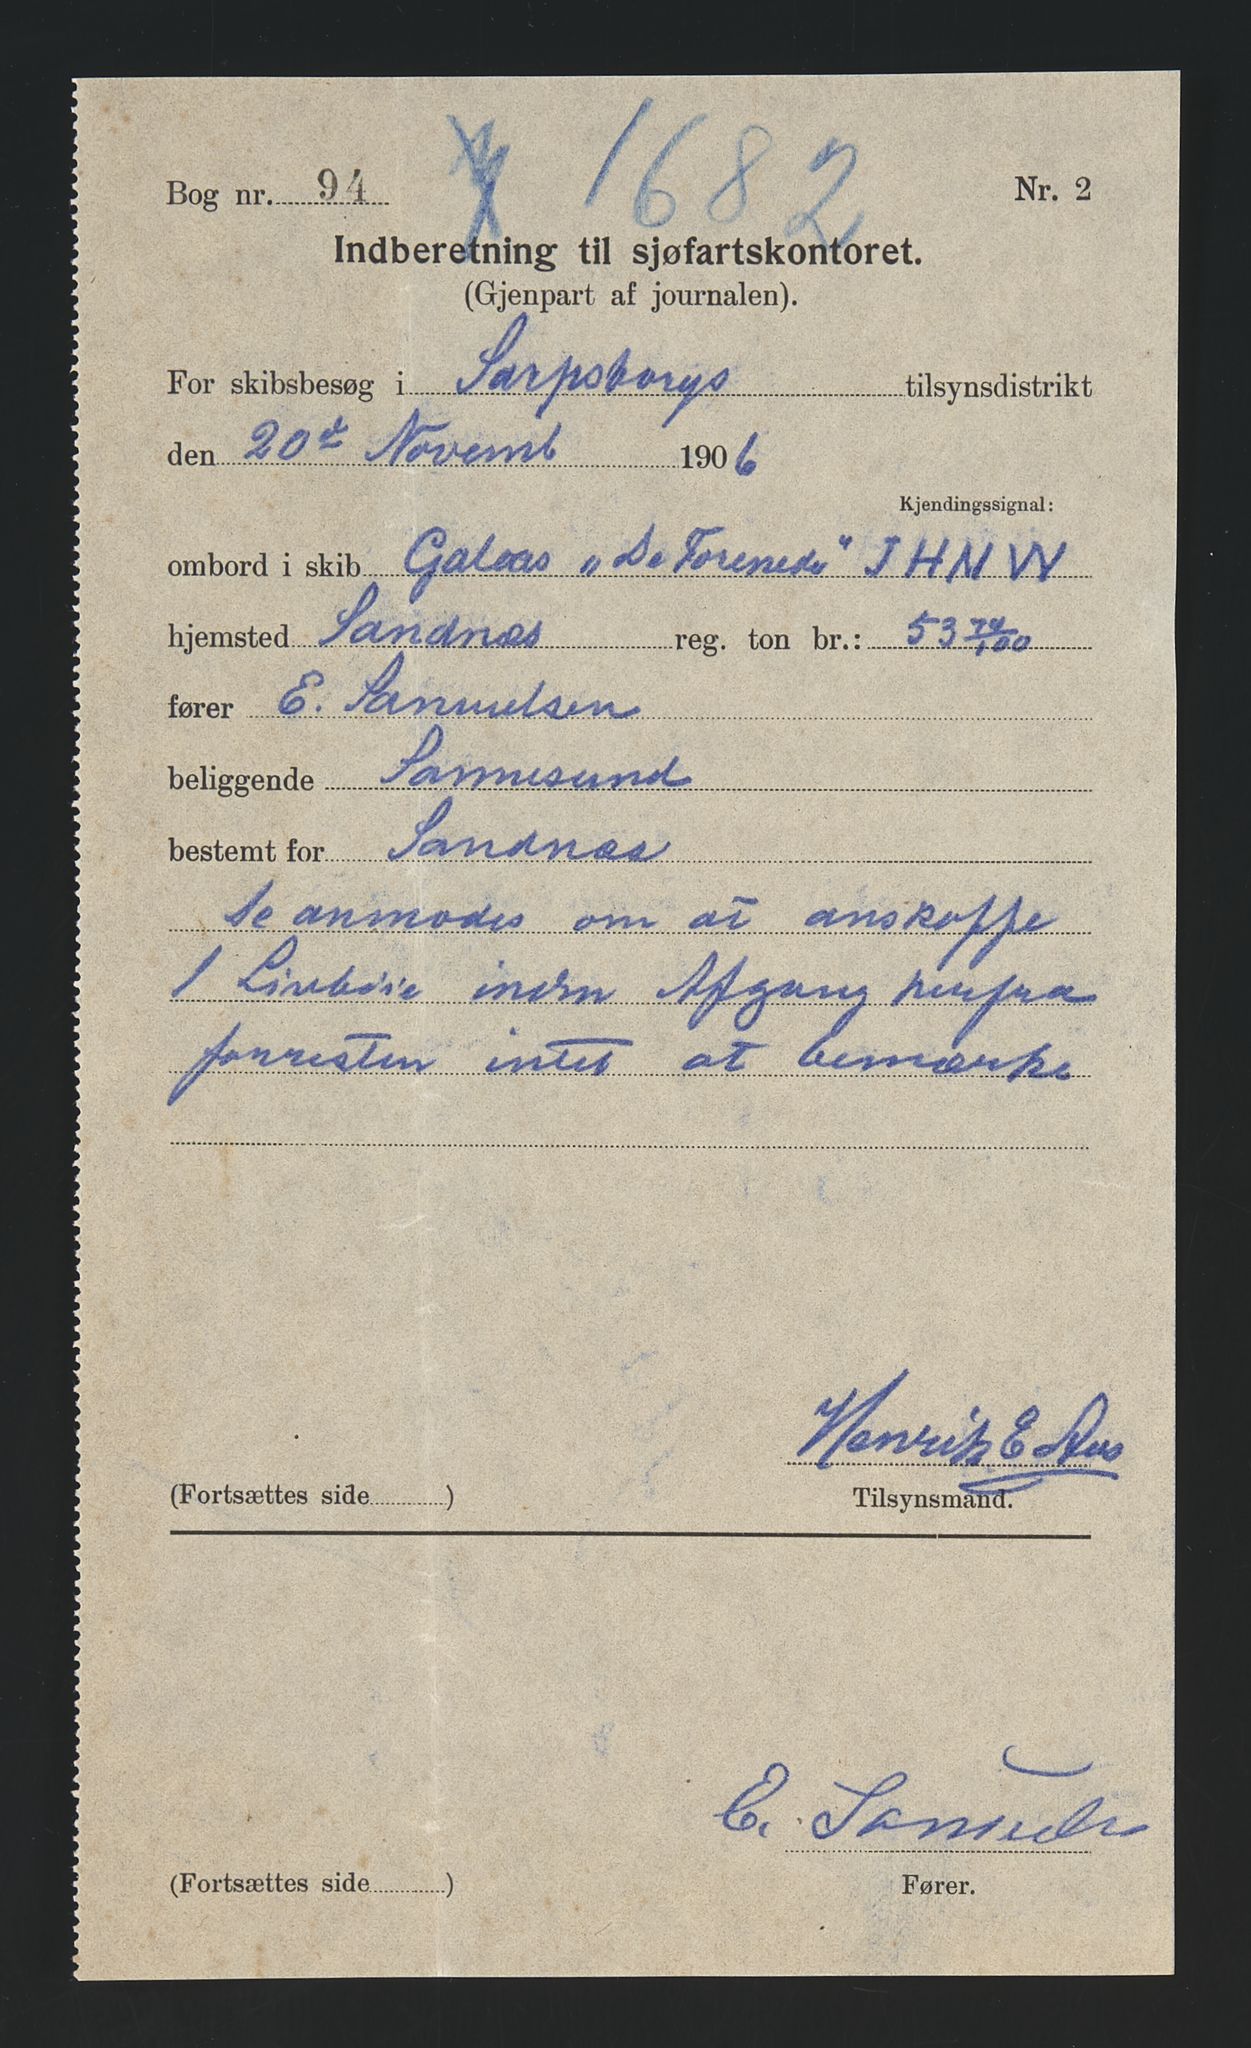 1682
Bog nr. 94 Nr. 2
Indberetning til sjøfartskontoret.
(Gjenpart af journalen).
For skibsbesøg i Sarpsborgs tilsynsdistrikt
den 20de Novemb 1906
Kjendingssignal:
ombord i skib Galeas „De Forenede" J H N W
hjemsted Sandnæs reg. ton br.: 53 74/100
fører E. Samuelsen
beliggende Sannesund
bestemt for Sandnæs
De anmodes om at anskaffe
1 Livbøie inden Afgang herfra
forresten intet at bemærke
Henrik E Aas
(Fortsættes side ) Tilsynsmand.
E. Samuels
(Fortsættes side ) Fører.